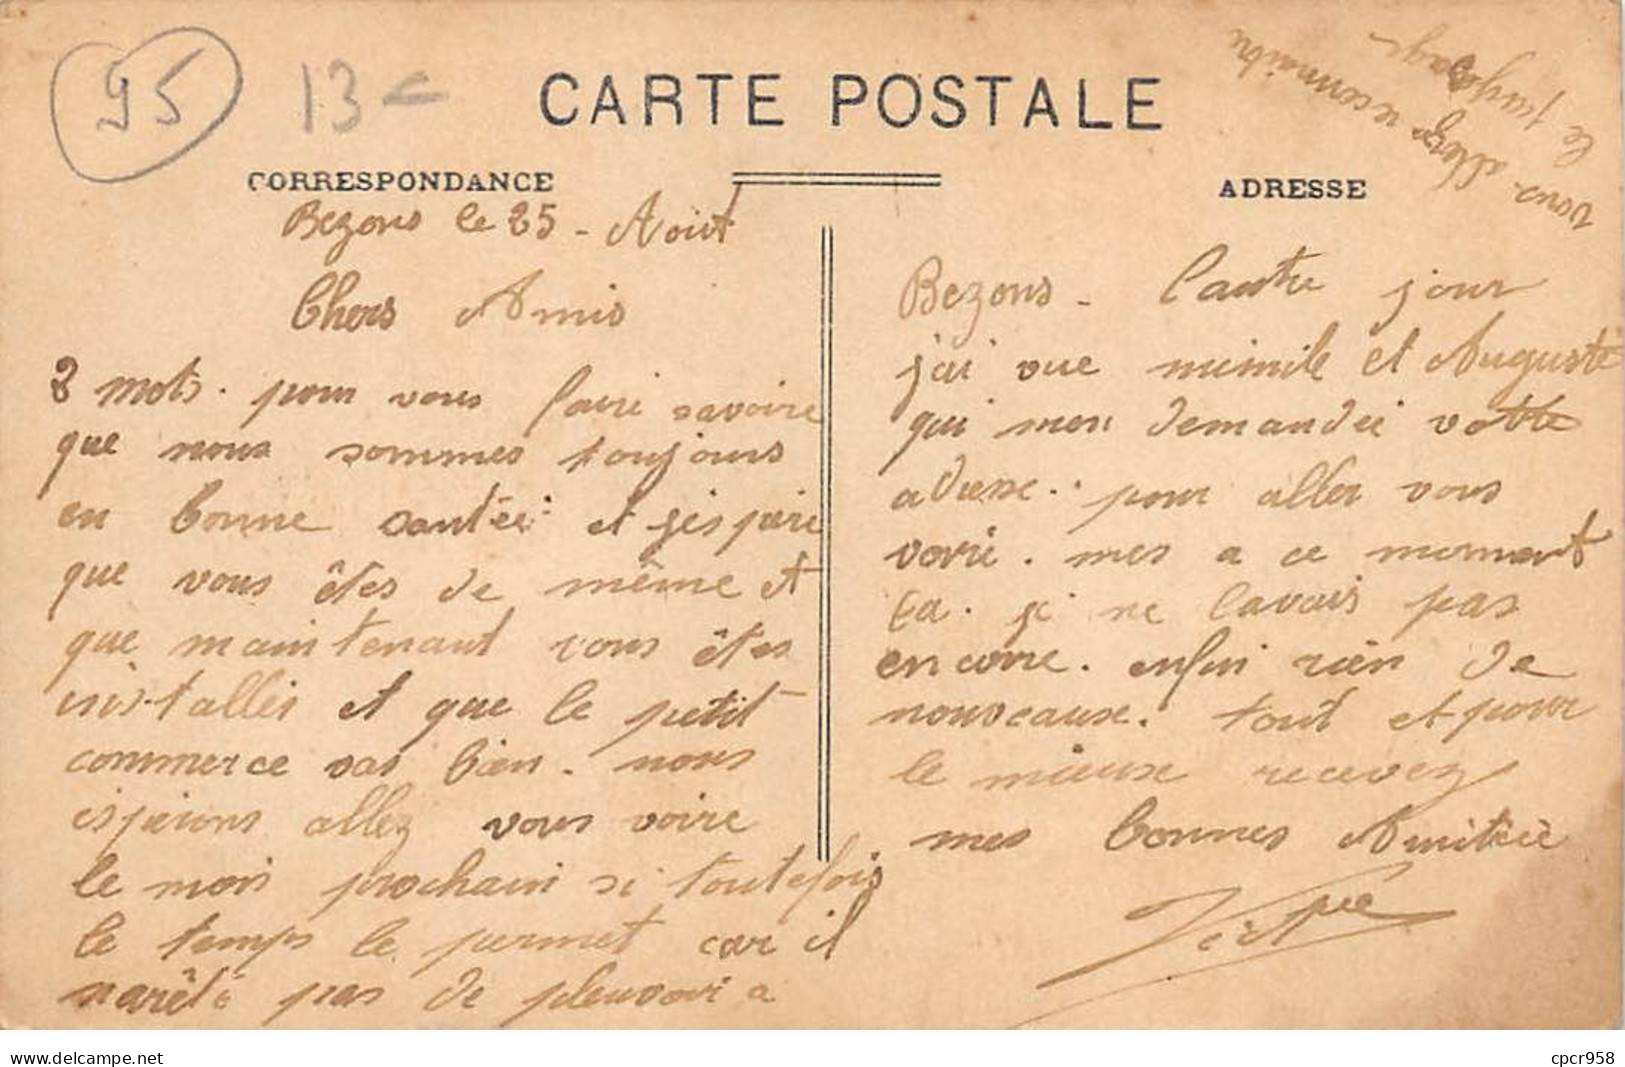 95
13
CARTE POSTALE
CORRESPONDANCE
ADRESSE
vous allez reconnaitre
le paysage
Bezons le 25 - Aout
Chers Amis
2 mots. pour vous faire savoire
que nous sommes toujours
en bonne santée et j'espère
que vous êtes de même et
que maintenant vous êtes
installés et que le petit
commerce vas bien. nous
espérons allez vous voire
le mois prochain si toutefois
le temps le permet car il
narêté pas de pleuvoir a
Bezons. l'autre jour
j'ai vue mimile et Auguste
qui mon demandée votre
adresse. pour aller vous
voir. mes a ce moment
la. je ne lavais pas
encore. enfin rien de
nouveaux. tout et pour
le mieux recevez
mes bonnes Amitiée
www.delcampe.net
cpcr958